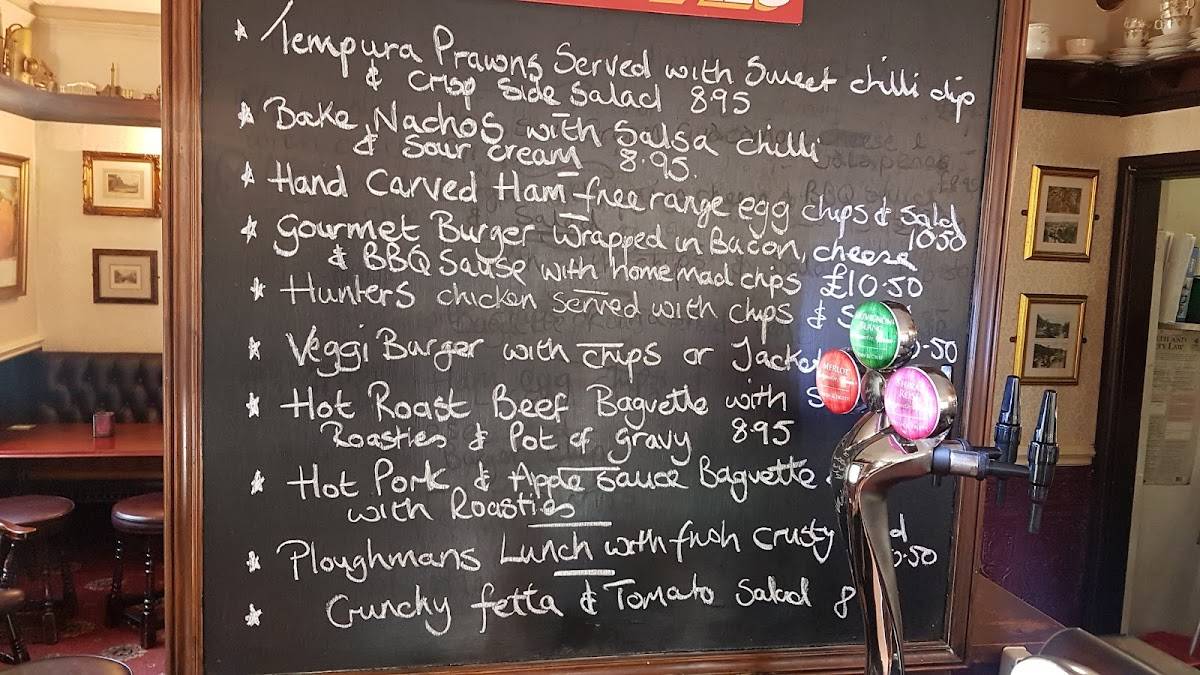 * Tempura Prawns Served with Sweet chilli dip
& Crisp side salad 8.95
* Bake Nachos with Salsa chilli
& Sour cream 8.95.
* Hand Carved Ham free range egg chips & salad
10.50
* Gourmet Burger wrapped in Bacon, cheese
& BBQ Sause with home mad chips £10.50
* Hunters chicken served with chips &
* Veggi Burger with chips or Jacket .50
* Hot Roast Beef Baguette with
Roasties & Pot of gravy 8.95
* Hot Pork & Apple sauce Baguette
with Roasties
* Ploughmans Lunch with fresh crusty
.50
* Crunchy fetta & Tomato Salad 8
SAUVIGNON
BLANC
MERLOT
SHIRAZ
ROSÉ